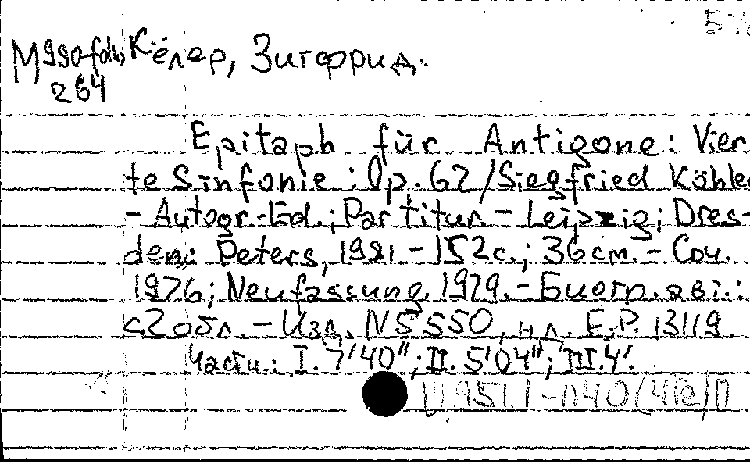 Кёлер, Зигфрид.
М990-fol.
264
Epitaph für Antigone: Vier-
te Sinfonie: Op. 62 / Siegfried Köhle
- Autogr.-Ed.; Partitur. - Leipzig; Dres-
den: Peters, 1981. - 152с.; 36см. - Соч.
1976; Neufassung 1979. -
с 2 обл. - Изд. N5550, н.л. E.P. 13119.
Части: I. 7'40"; II. 5'04"; III. 4'.